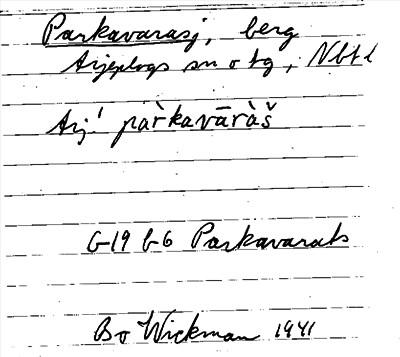 Parkavarasj, berg
Arjeplogs sn o tg, Nbt l
Arj! pàrkavāràš
G-19 b-6 Parkavarats
Bo Wickman 1941